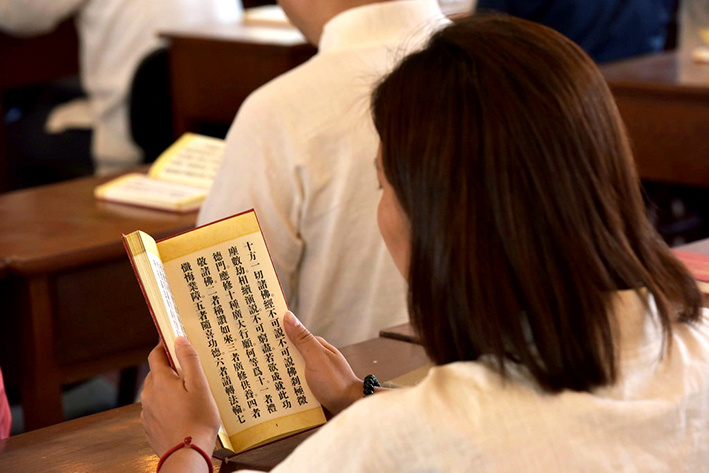 十方一切諸佛經不可說不可說佛剎極微
塵數劫相續演說不可窮盡若欲成就此功
德門應修十種廣大行願何等為十一者禮
敬諸佛二者稱讚如來三者廣修供養四者
懺悔業障五者隨喜功德六者請轉法輪七